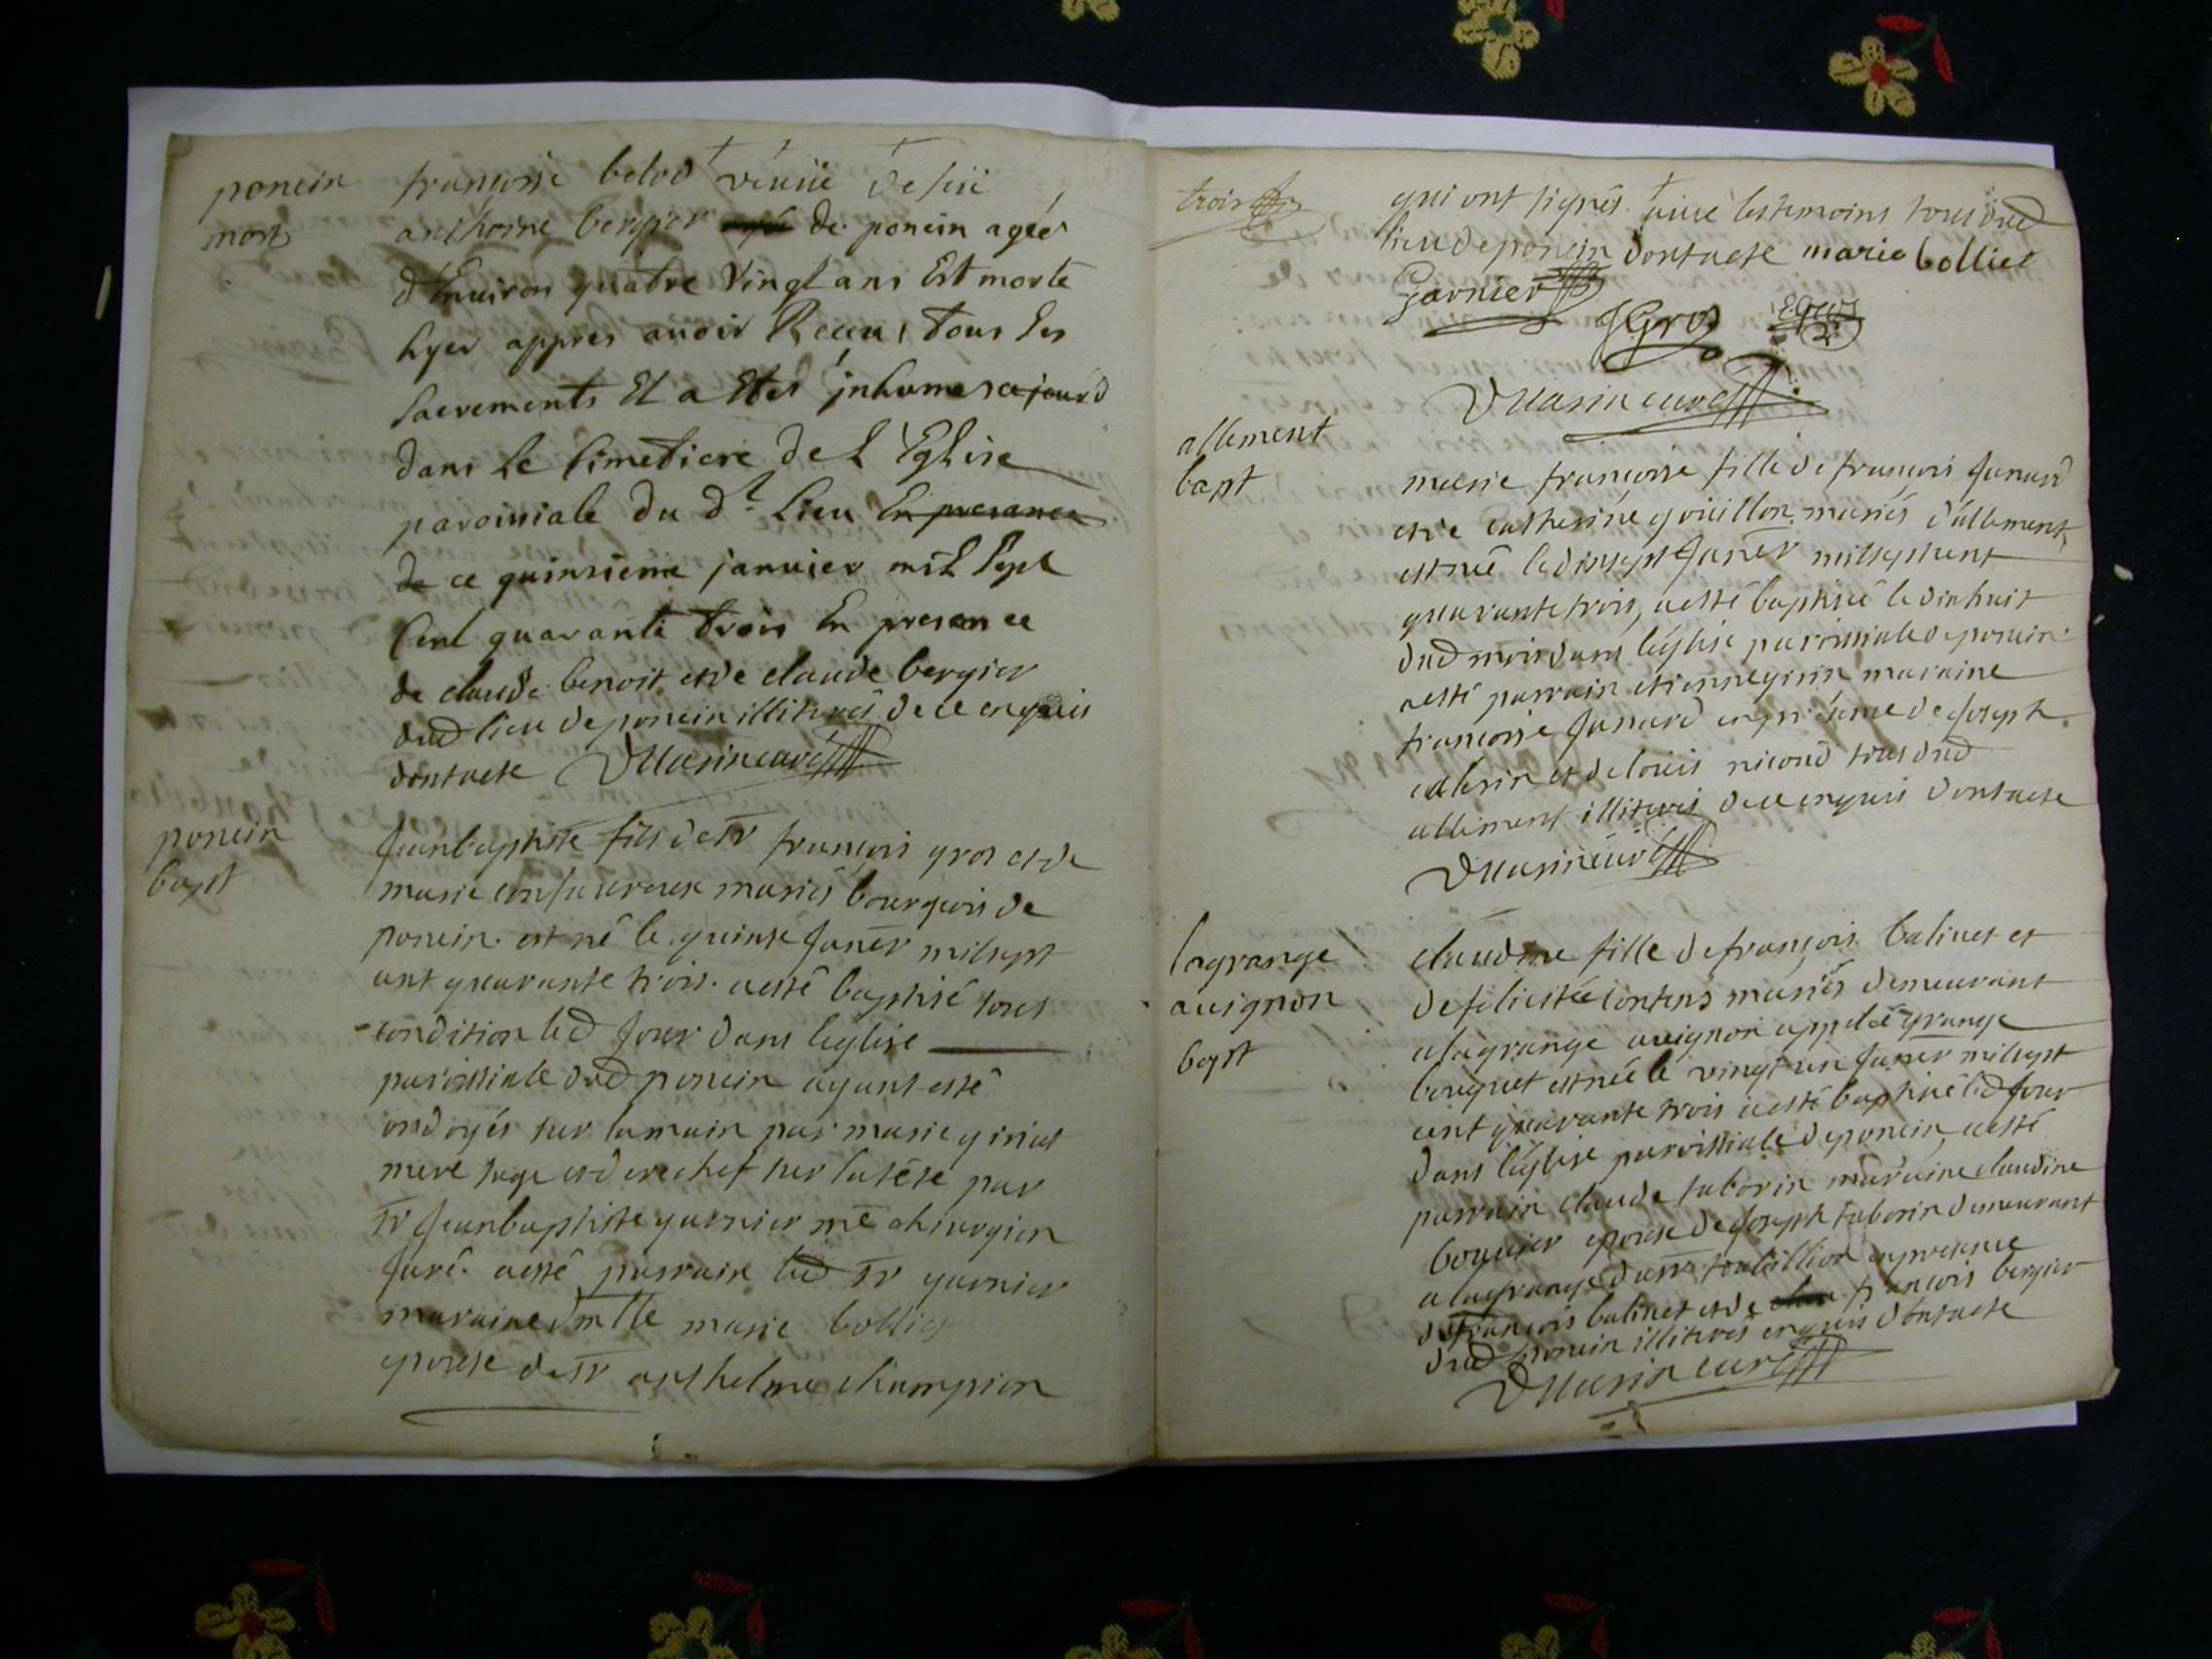 poncin
mort
françoise belod veuue de feü
anthoine bergier de poncin agéé
d'Enuiron quatre Vingt ans Est morte
hyer appres auoir Receu tous les
sacrements Et a Etes jnhumes ce jourd
dans Le Cimetiere De L'Eglise
paroissiale Du dt Lieu En presance
de ce quinsieme januier mil sept
Cent quarante trois En presence
de claude benoit et de claude bergier
dud lieu de poncin illiterés de ce enquis
dont acte Duasin curé
poncin
bapt
Jean baptiste fils de sr françois gros et de
marie mariés bourgeois de
poncin est né le quinse Janer mil sept
cent quarante trois a esté baptisé sous
condition led Jour dans leglise
paroissiale dud poncin ayant esté
ondoyés sur la main par marie girint
mere sage et derechef sur la tête par
sr Jean baptiste garnier me chirurgien
Juré a esté parrain led sr garnier
maraine dmlle marie bollier
epouse de sr anthelme champion
trois
qui ont signés auec les temoins tous dud
lieu de poncin dont acte marie bolliet
Garnier
Gros
Duasin curé
allement
bapt
marie françoise fille de françois Junard
et de catherine gouillon mariés d'allement
est née le dixsept Janer mil sept cent
quarante trois, a esté baptisée le dixhuit
dud mois dans léglise paroissiale de poncin
a esté parrain etienne girin maraine
françoise Junard en presence de Joseph
et de loüis nicoud tous dud
allement illiterés de ce enquis dont acte
Duasin curé
lagrange
auignon
bapt
claudine fille de françois balinet et
de felicitée contens mariés demeurant
a lagrange auignon appellée grange
bouquet est née le vingt un Janer mil sept
cent quarante trois a esté baptisée led Jour
dans léglise paroissiale de poncin, a esté
parrain claude taborin maraine claudine
bouuier epouse de Joseph taborin demeurant
a lagrange du sr en presence
de françois balinet et de françois bergier
dud poncin illiterés enquis dont acte
Duasin curé